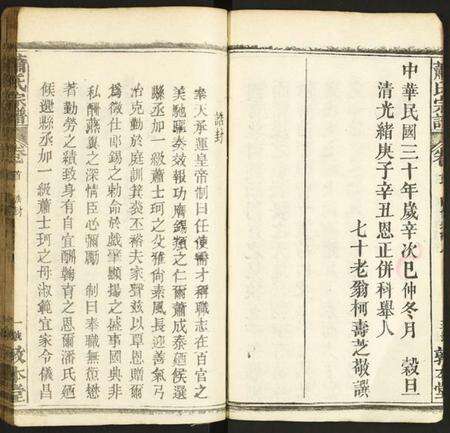 蕭氏宗譜
卷首
敦本堂
中華民國三十年歲次辛巳仲冬月 穀旦
清光緒庚子辛丑恩正併科舉人
七十老翁柯壽芝敬譔
誥封
奉天承運皇帝制曰任使需才稱職志在百官之
美馳驅奏效報功膺錫類之仁爾蕭成泰廼候選
縣丞加一級蕭士珂之父雅尚素風長迎善氣弓
冶克勤於庭訓箕裘丕裕夫家聲茲以覃恩贈爾
為徵仕郎錫之勅命於戲肇顯揚之盛事國典非
私酬燕翼之深情臣心彌勵 制曰奉職無愆懋
著勤勞之績致身有自宜酬鞠育之恩爾潘氏廼
候選縣丞加一級蕭士珂之母淑範宜家令儀昌
蕭氏宗譜
卷首
誥封
一
敦本堂